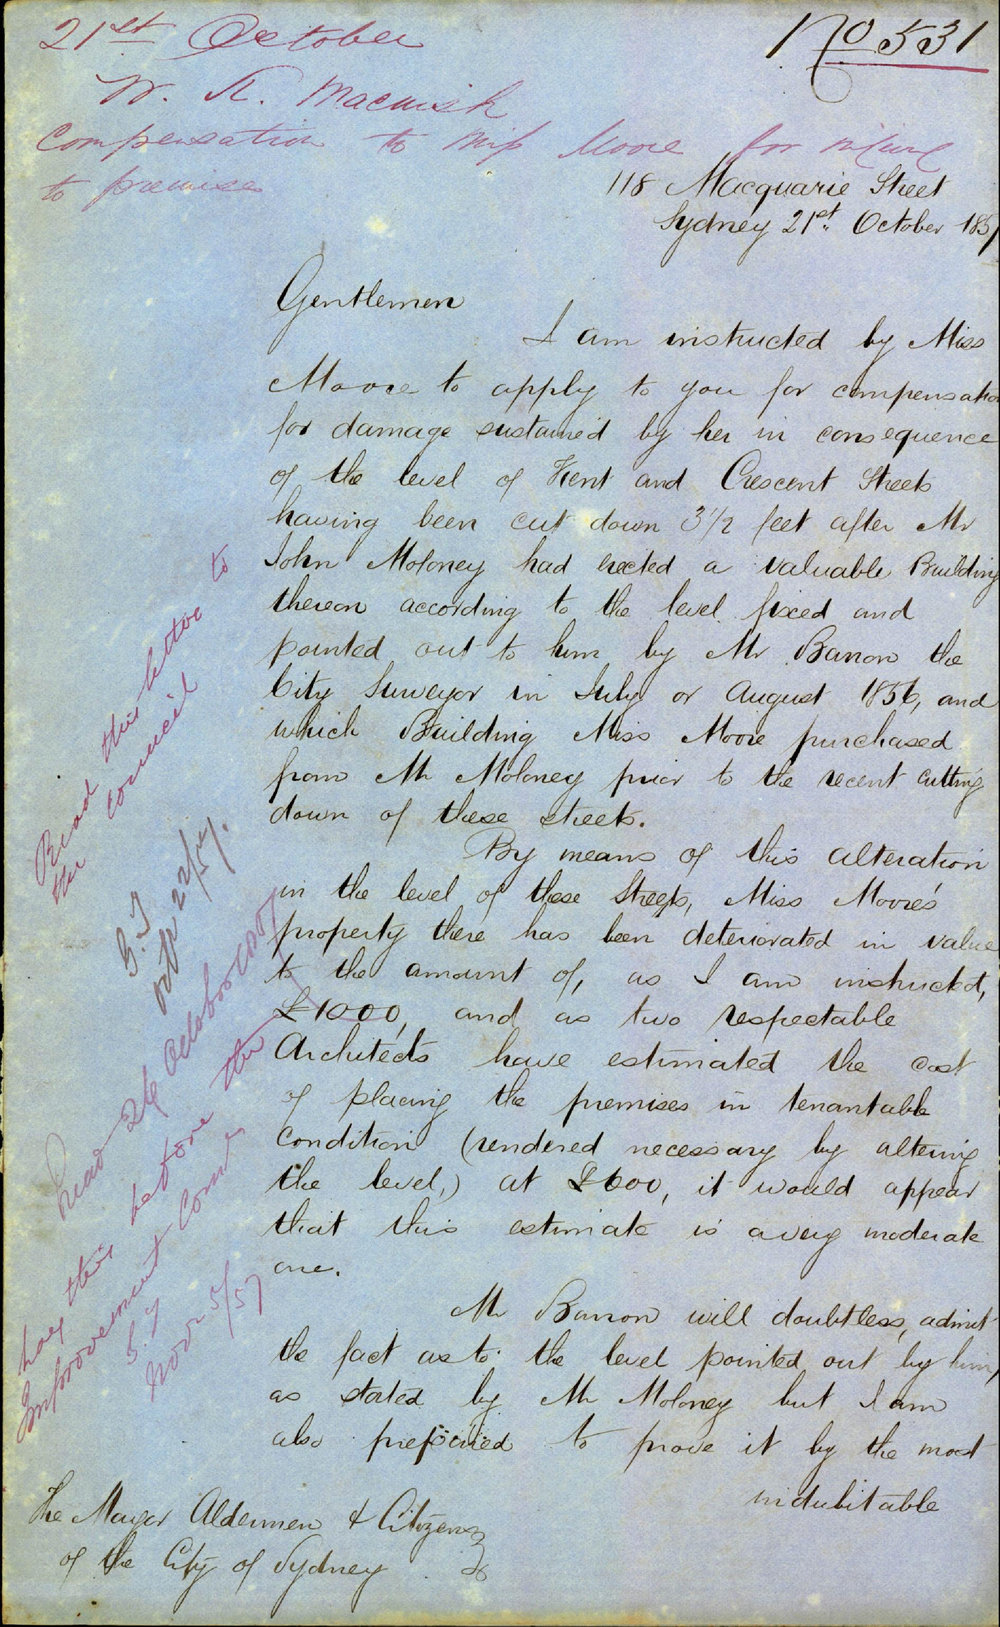 21st October
No 531
W. R.
Compensation to Miss Moore for injury
to premises
118 Macquarie Street
Sydney 21st October 1857
Gentlemen
I am instructed by Miss
Moore to apply to you for compensation
for damage sustained by her in consequence
of the level of Kent and Crescent Streets
having been cut down 3 1/2 feet after Mr
John Moloney had erected a valuable Building
thereon according to the level fixed and
pointed out to him by Mr Barron the
City Surveyor in July or August 1856, and
which Building Miss Moore purchased
from Mr Moloney prior to the recent cutting
down of these streets.
By means of this alteration
in the level of these Streets, Miss Moore's
property there has been deteriorated in value
to the amount of, as I am instructed,
£1000, and as two respectable
Architects have estimated the cost
of placing the premises in tenantable
condition (rendered necessary by altering
the level,) at £600, it would appear
that this estimate is a very moderate
one.
Mr Barron will doubtless, admit
the fact as to the level pointed out by him,
as stated by Mr Moloney but I am
also prepared to prove it by the most
indubitable
The Mayor Aldermen & Citizens
of the City of Sydney
Read this letter to
the Council
G. T
Octr 22/57.
Read 26 October 1857
Lay this before the
Improvement Comee
G. T
Novr 5/57